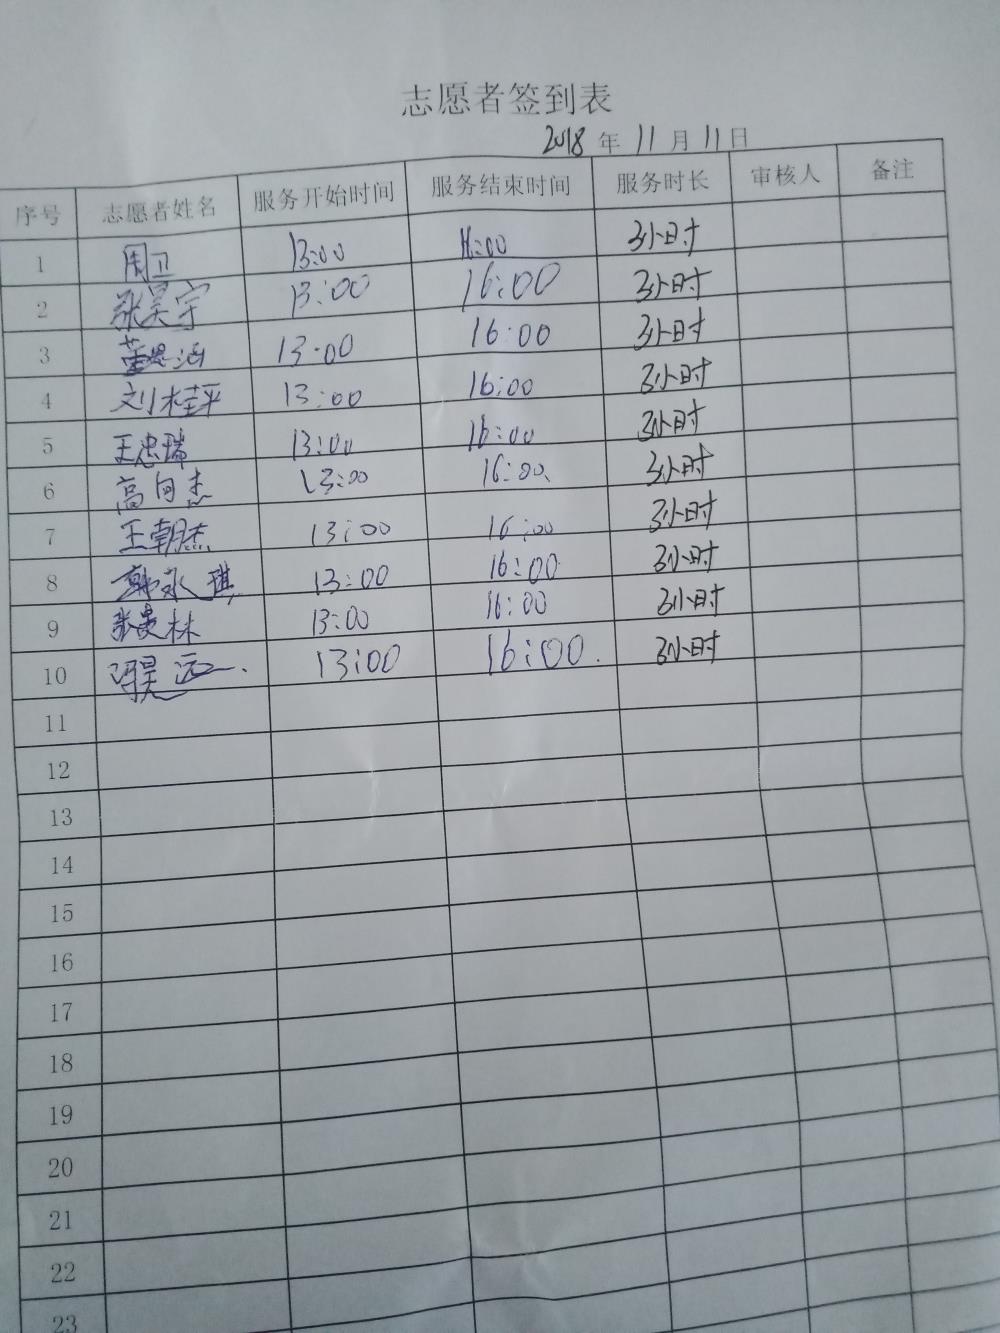 志愿者签到表
2018年11月11日
序号 志愿者姓名 服务开始时间 服务结束时间 服务时长 审核人 备注
1 周卫 13:00 16:00 3小时
2 张昊宇 13:00 16:00 3小时
3 董思涵 13:00 16:00 3小时
4 刘桂平 13:00 16:00 3小时
5 王忠瑞 13:00 16:00 3小时
6 高向杰 13:00 16:00 3小时
7 王朝杰 13:00 16:00 3小时
8 韩永琪 13:00 16:00 3小时
9 张贵林 13:00 16:00 3小时
10 冯昊远 13:00 16:00 3小时
11
12
13
14
15
16
17
18
19
20
21
22
23